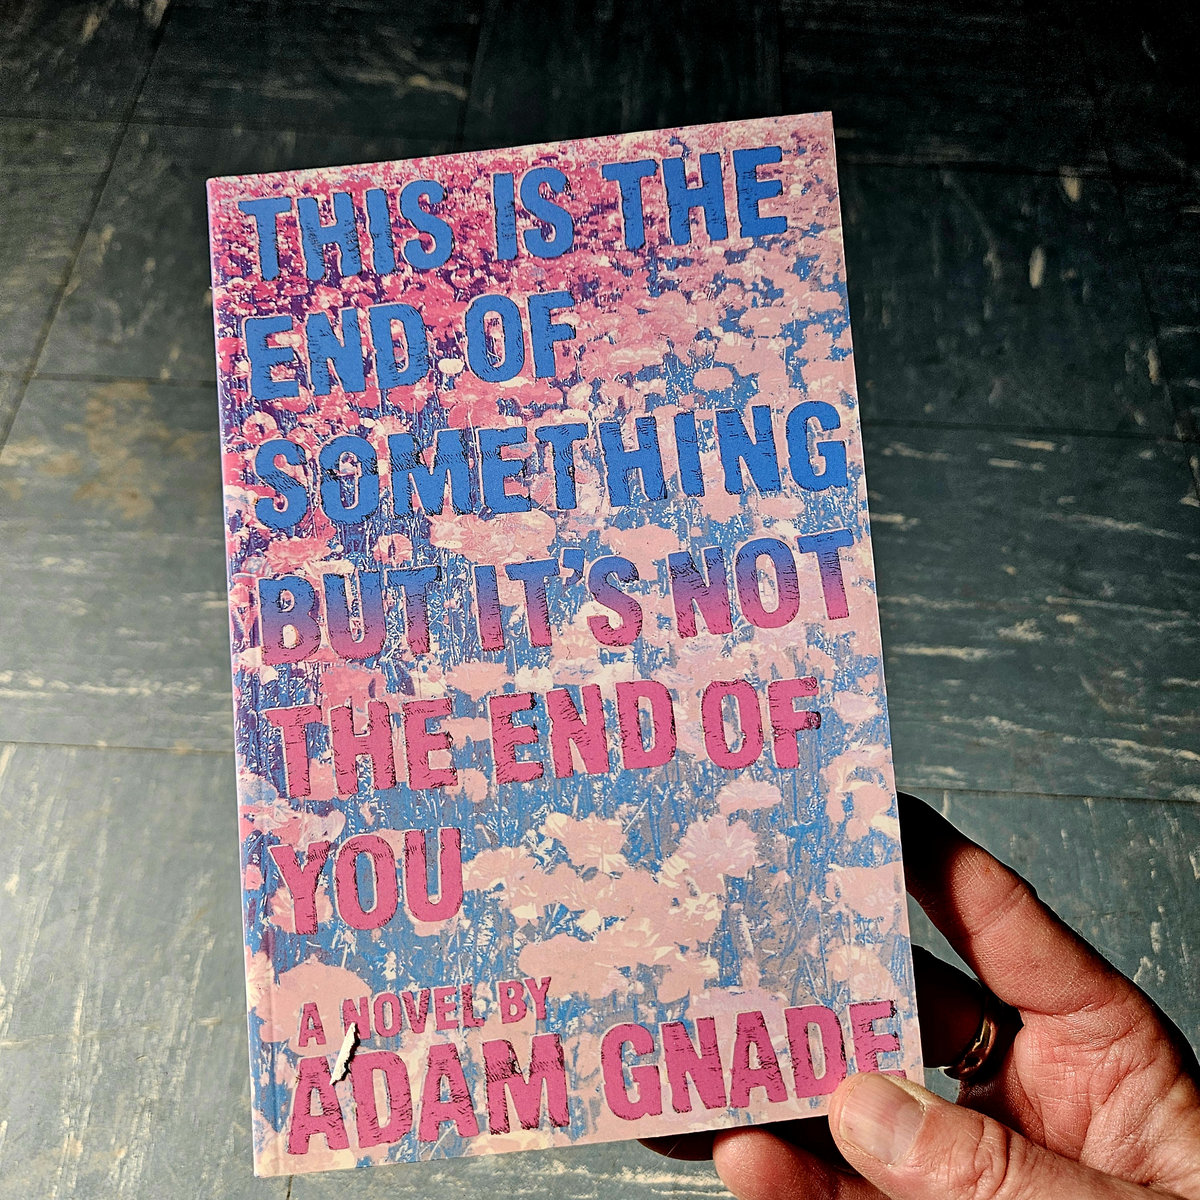 THIS IS THE
END OF
SOMETHING
BUT IT'S NOT
THE END OF
YOU
A NOVEL BY
ADAM GNADE